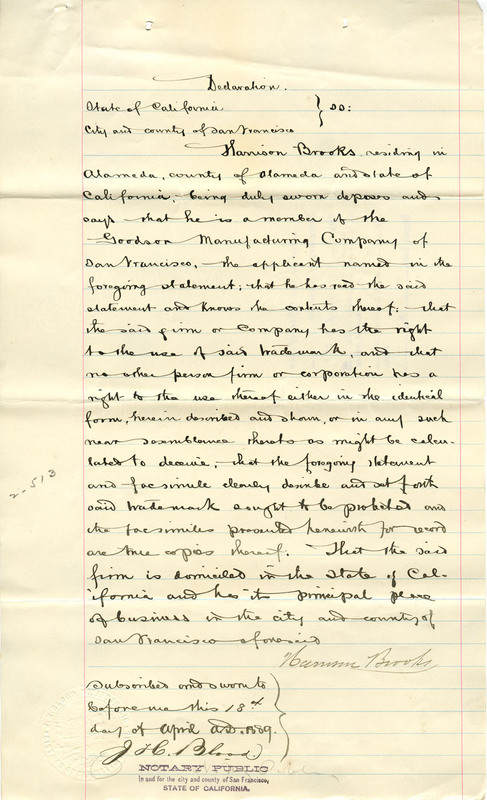 Declaration.
State of California } SS:
City and county of San Francisco
Harrison Brooks, residing in
Alameda, county of Alameda and state of
California, being duly sworn deposes and
says that he is a member of the
Goodson Manufacturing Company of
San Francisco, the applicant named in the
foregoing statement; that he has read the said
statement and knows the contents thereof; that
the said firm or Company has the right
to the use of said trademark, and that
no other person firm or corporation has a
right to the use thereof either in the identical
form, herein described and shown, or in any such
near resemblance thereto as might be calcu-
lated to deceive; that the foregoing statement
and facsimile clearly describe and set forth
said trademark sought to be protected and
the facsimiles presented herewith for record
are true copies thereof. That the said
firm is domiciled in the State of Cal-
ifornia and has its principal place
of business in the city and county of
San Francisco aforesaid
Harrison Brooks
Subscribed and sworn to
before me this 18th
day of April A.D. 1889.
J. H. C. Blood
NOTARY PUBLIC
In and for the city and county of San Francisco,
STATE OF CALIFORNIA.
2-513